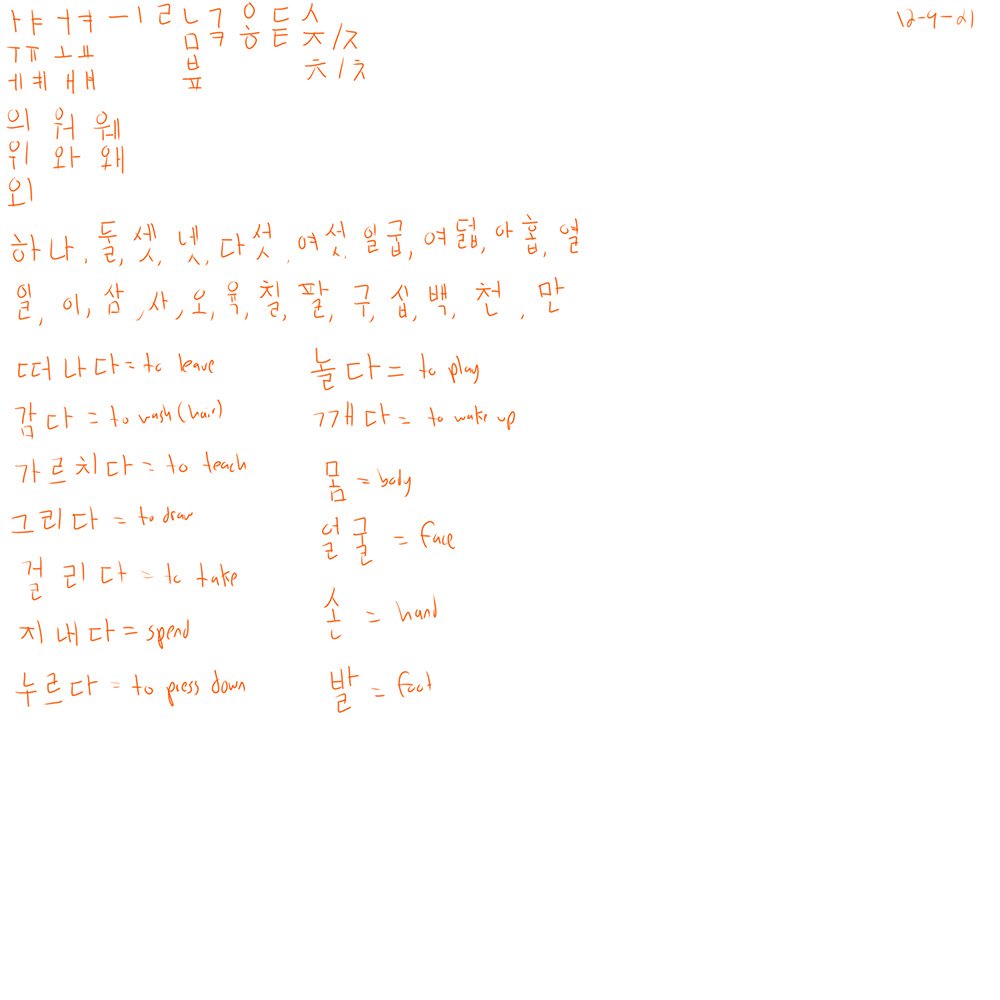 ㅏㅑ ㅓㅕ ㅡㅣㄹ ㄴ ㄱ ㅇ ㄷ ㅅ 12-9-21
ㅁ ㅋ ㅎ ㅌ ㅈ/ㅈ
ㅜㅠ ㅗㅛ ㅂ ㅊ/ㅊ
ㅔㅖ ㅐㅒ ㅍ
의 워 웨
위 와 왜
외
하나, 둘, 셋, 넷, 다섯, 여섯, 일굽, 여덟, 아홉, 열
일, 이, 삼, 사, 오, 육, 칠, 팔, 구, 십, 백, 천, 만
떠나다 = to leave 놀다 = to play
감다 = to wash (hair) 깨다 = to wake up
가르치다 = to teach 몸 = body
그리다 = to draw 얼굴 = face
걸리다 = to take 손 = hand
지내다 = spend 발 = foot
누르다 = to press down